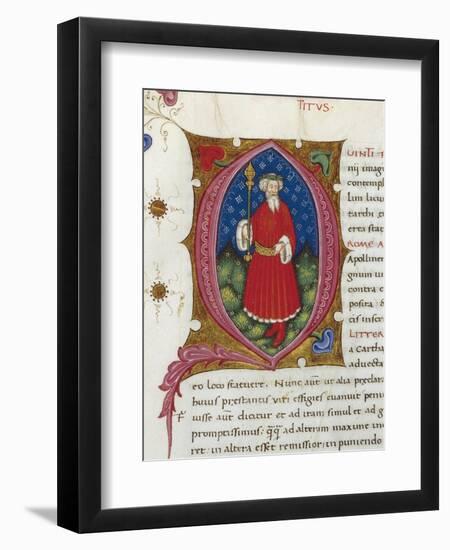 TITVS·
VINTI F
nij imagi
contempl
lum luciu
tarchi
erea stat
ROME A
Apolliner
gnum ui
contra e
posita: &
cis inscr
LITTER
a Cartha
aduecta
eo loco statuere. Nunc aut̄ ut alia præclar
huius præstantis uiri effigies euanuit penu
iuisse aut̄ dicitur et ad iram simul et ad g
promptissimus: qq̄ ad alterum maxime in
ret: in altera esset remissior, in puniendo